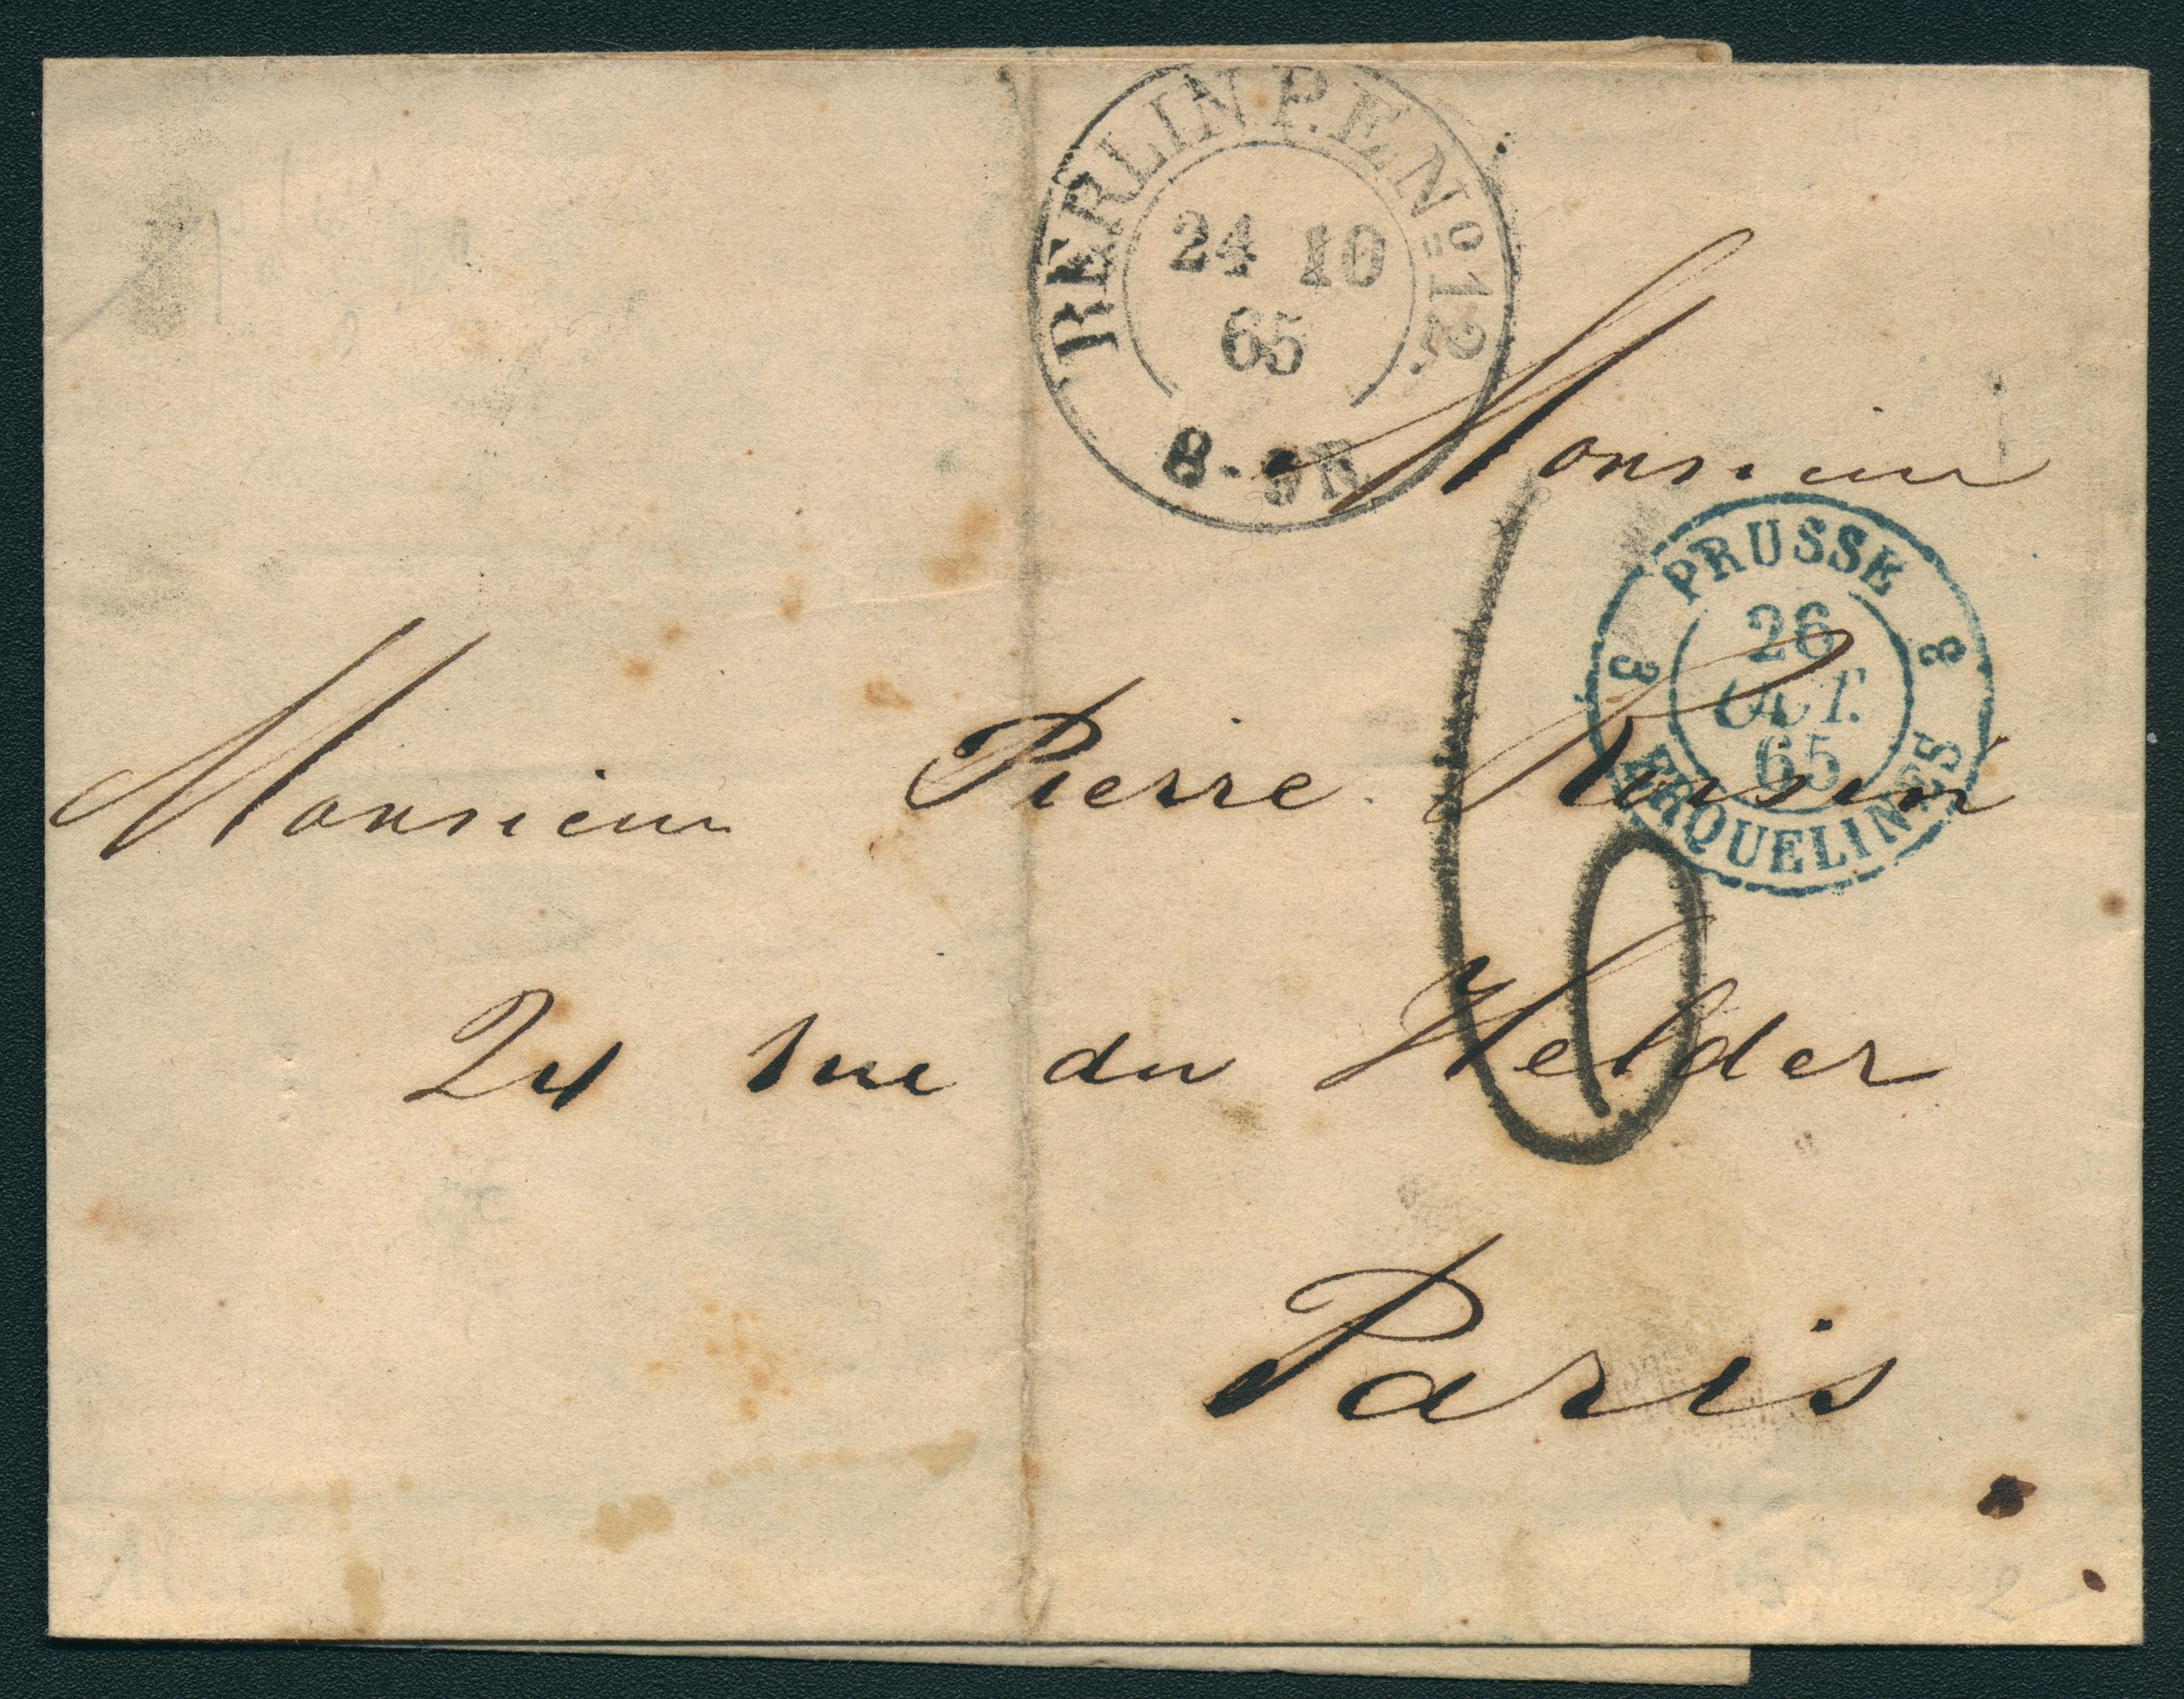 BERLIN P.E. No 12.
24 10
65
8-9
Monsieur
PRUSSE
3 3
26
OCT.
65
ERQUELINES
Monsieur Pierre
24 rue du Helder
6
Paris